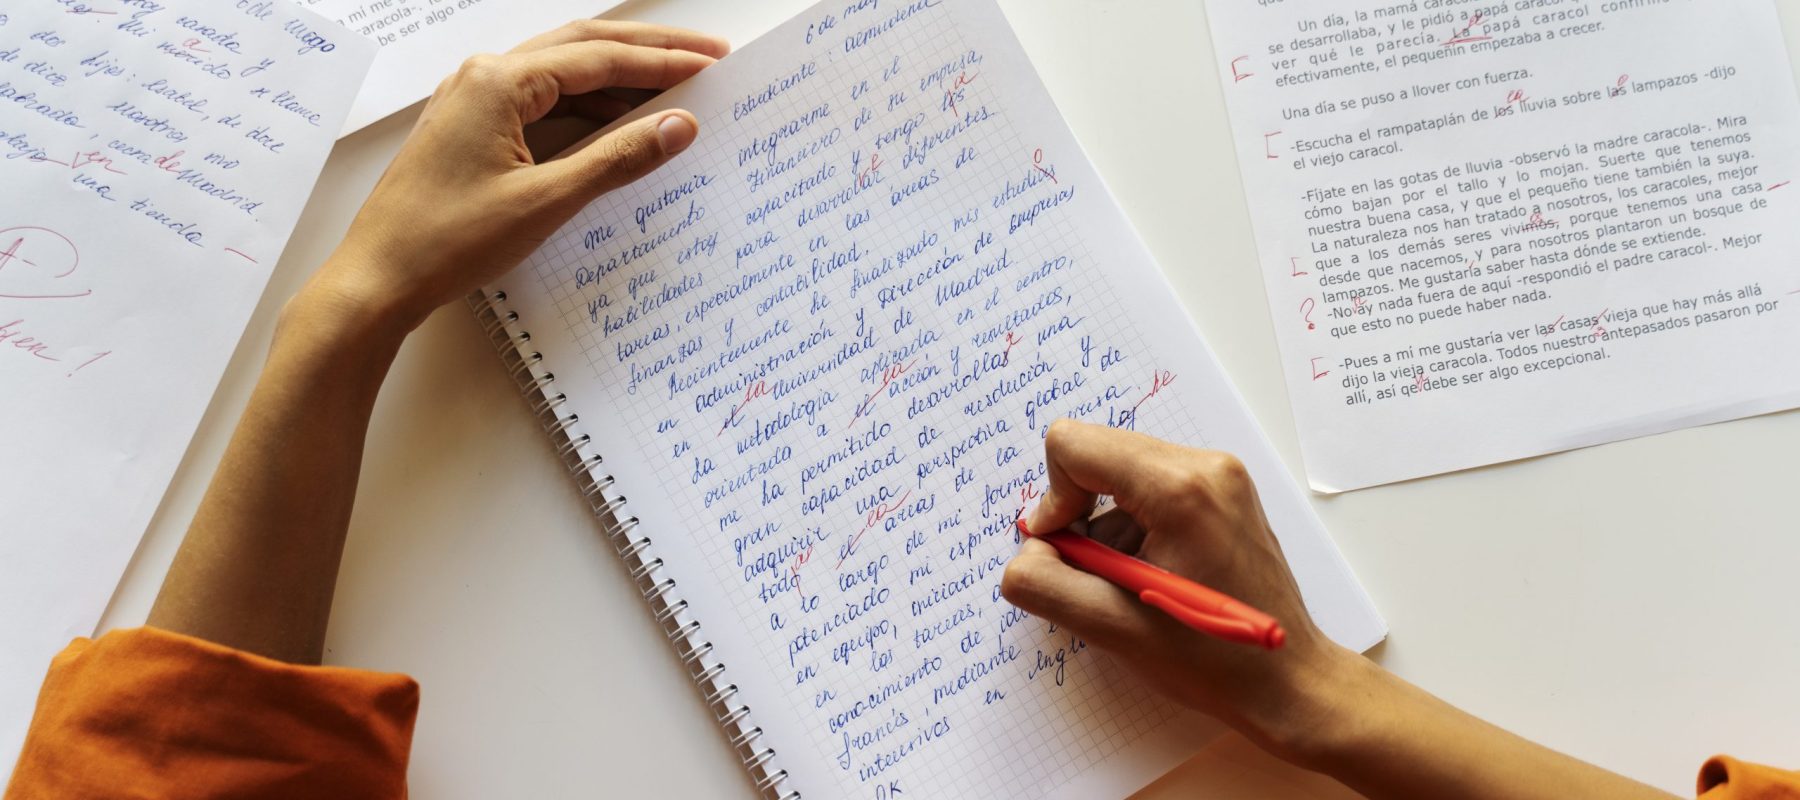 de mayo
casada y
Mi marido a se llama
dos hijos: Isabel, de doce
de diez Nosotros vivo
en cerca de Madrid.
una tienda
A-
6 de may
Estudiante: almudena
Me gustaría integrarme en el
Departamento financiero de su empresa,
ya que estoy capacitado y tengo las a
habilidades para desarrollar e diferentes
tareas, especialmente en las áreas de
finanzas y contabilidad.
Recientemente he finalizado mis estudios o
en administración y Dirección de Empresas
en el la Universidad de Madrid.
La metodología aplicada en el centro,
orientada a el la acción y resultados,
me ha permitido desarrollar una
gran capacidad de resolución y
adquirir una perspectiva global de
todo as el la areas de la empresa.
a lo largo de mi formac hoy he
potenciado mi espiritu
en equipo, iniciativa
en las tareas, a
conocimiento de idi
francés, mediante
intecrivos en Ingl
OK
mi me g
caracola-. T
be ser algo exc
Un día, la mamá caraco
se desarrollaba, y le pidió a papá caracol q
ver qué le parecía. La papá caracol confirmó
efectivamente, el pequeñin empezaba a crecer.
Una día se puso a llover con fuerza.
-Escucha el rampataplán de los la lluvia sobre las lampazos -dijo
el viejo caracol.
-Fíjate en las gotas de lluvia -observó la madre caracola-. Mira
cómo bajan por el tallo y lo mojan. Suerte que tenemos
nuestra buena casa, y que el pequeño tiene también la suya.
La naturaleza nos han tratado a nosotros, los caracoles, mejor
que a los demás seres vivimos, porque tenemos una casa
desde que nacemos, y para nosotros plantaron un bosque de
lampazos. Me gustaría saber hasta dónde se extiende.
? -No ay nada fuera de aquí -respondió el padre caracol-. Mejor
que esto no puede haber nada.
-Pues a mí me gustaría ver las casas vieja que hay más allá
dijo la vieja caracola. Todos nuestro antepasados pasaron por
allí, así qe debe ser algo excepcional.